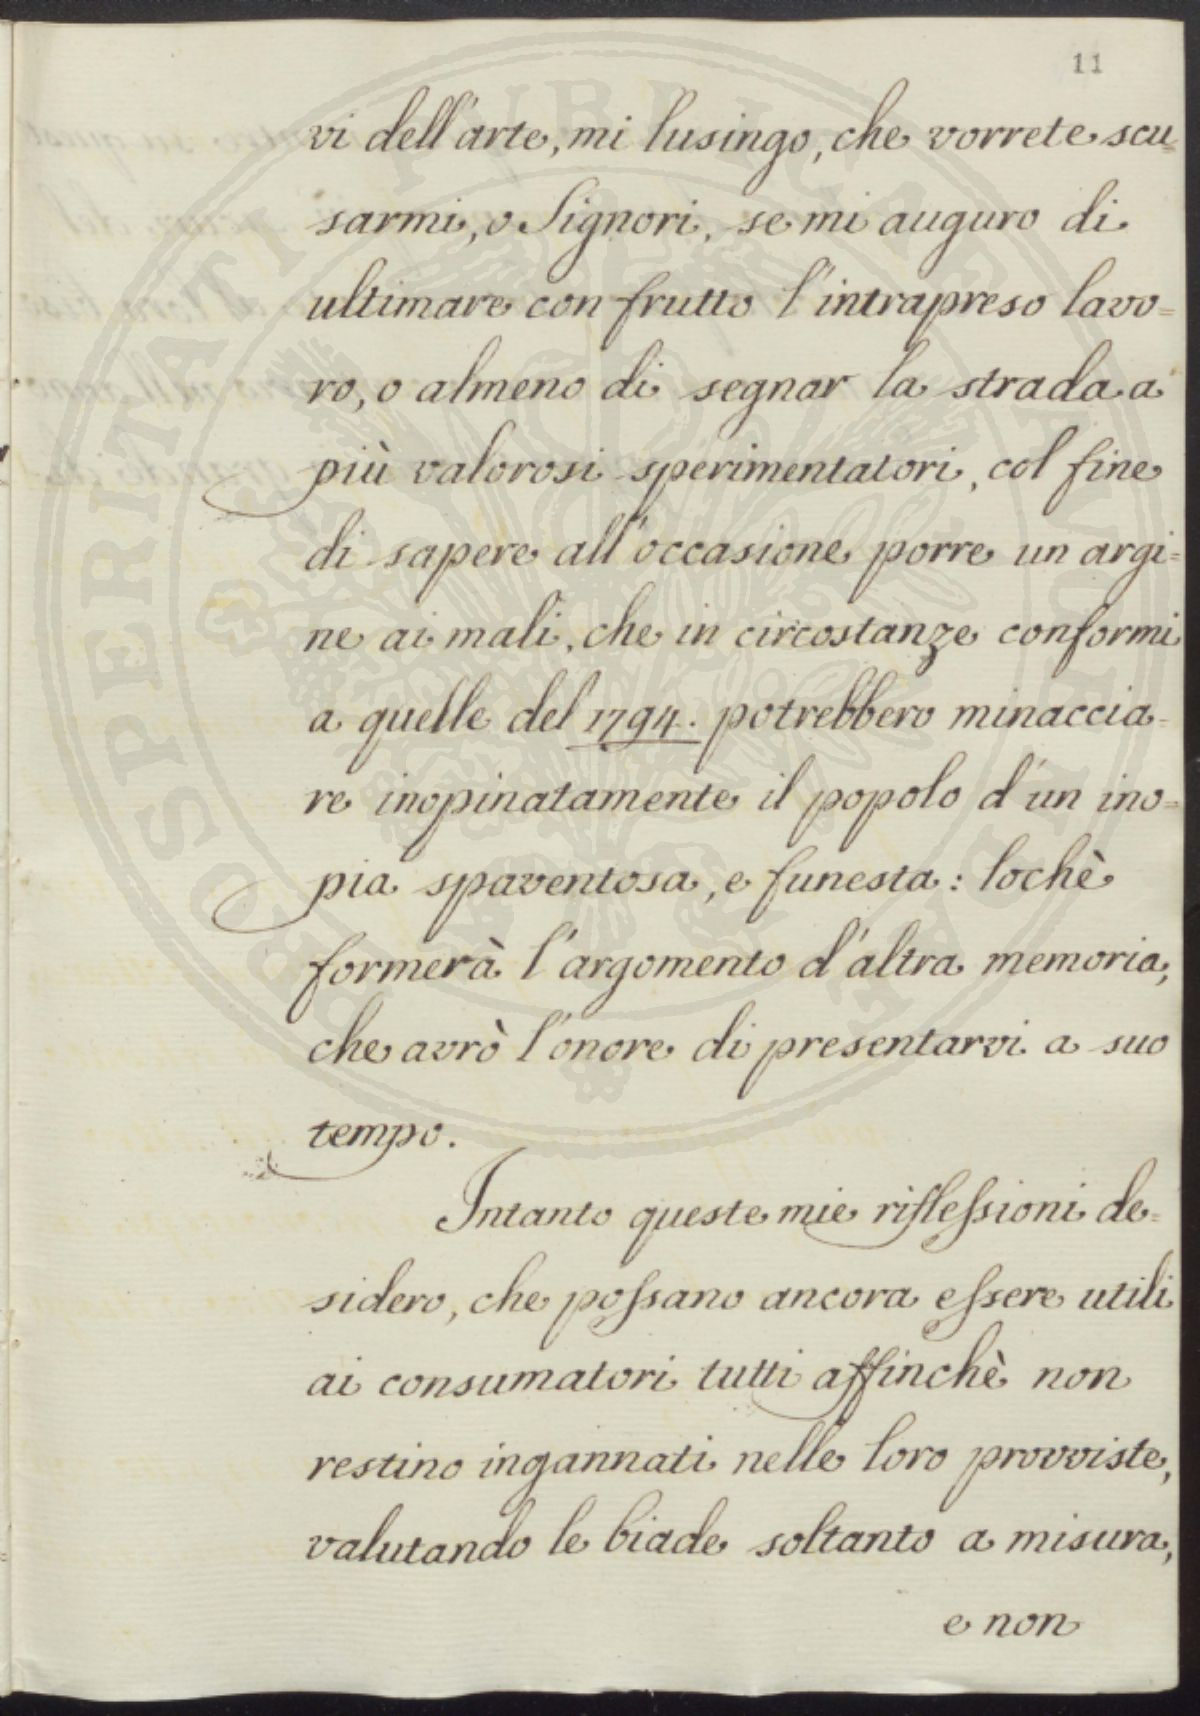 11
vi dell'arte, mi lusingo, che vorrete scu-
sarmi, o Signori, se mi auguro di
ultimare con frutto l'intrapreso lavo=
ro, o almeno di segnar la strada a
più valorosi sperimentatori, col fine
di sapere all'occasione porre un argi=
ne ai mali, che in circostanze conformi
a quelle del 1794. potrebbero minaccia-
re inopinatamente il popolo d'un ino=
pia spaventosa, e funesta: lochè
formerà l'argomento d'altra memoria,
che avrò l'onore di presentarvi a suo
tempo.
Intanto queste mie riflessioni de=
sidero, che possano ancora essere utili
ai consumatori tutti affinchè non
restino ingannati nelle loro provviste,
valutando le biade soltanto a misura,
e non
PROSPERITATI PUBLICAE AUGENDAE